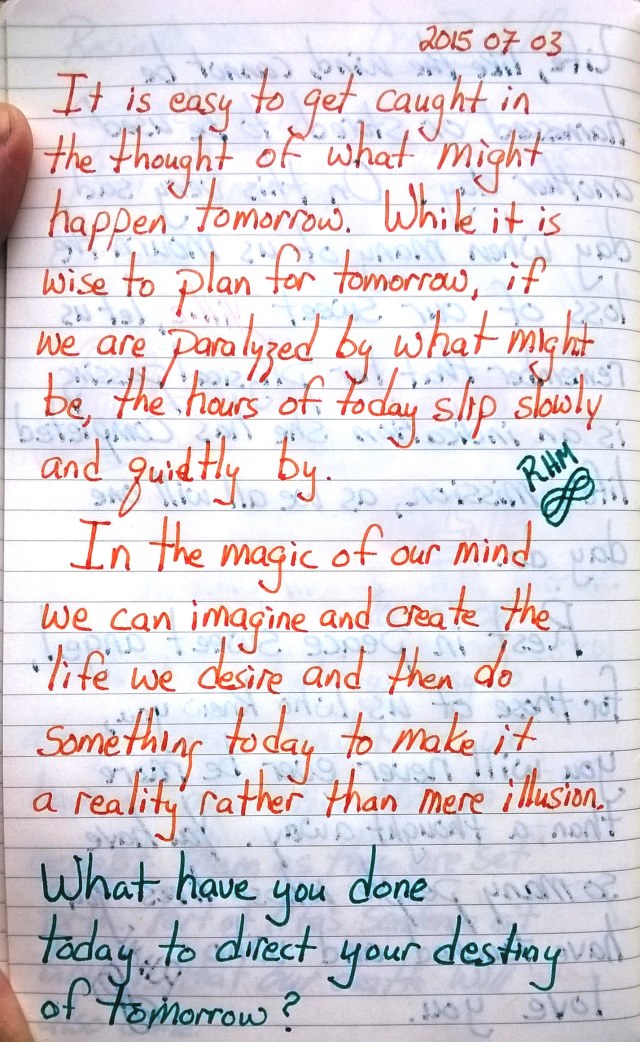 2015 07 03
It is easy to get caught in
the thought of what might
happen tomorrow. While it is
wise to plan for tomorrow, if
we are paralyzed by what might
be, the hours of today slip slowly
and quietly by.
RHM
In the magic of our mind
we can imagine and create the
life we desire and then do
something today to make it
a reality rather than mere illusion.
What have you done
today to direct your destiny
of tomorrow?